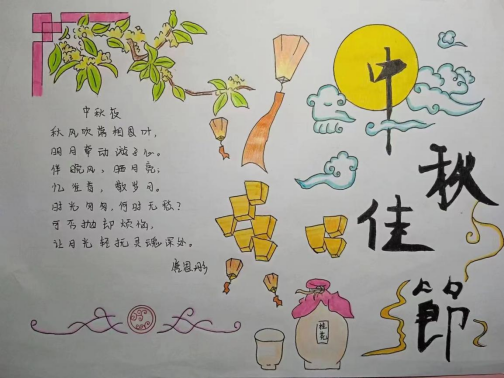 中秋佳節
中秋夜
秋风吹落相思叶，
明月牵动游子心。
伴晚风，晒月亮，
忆往昔，数岁月。
时光匆匆，何时无愁？
可否抛却烦恼，
让月光轻抚灵魂深处。
桂花